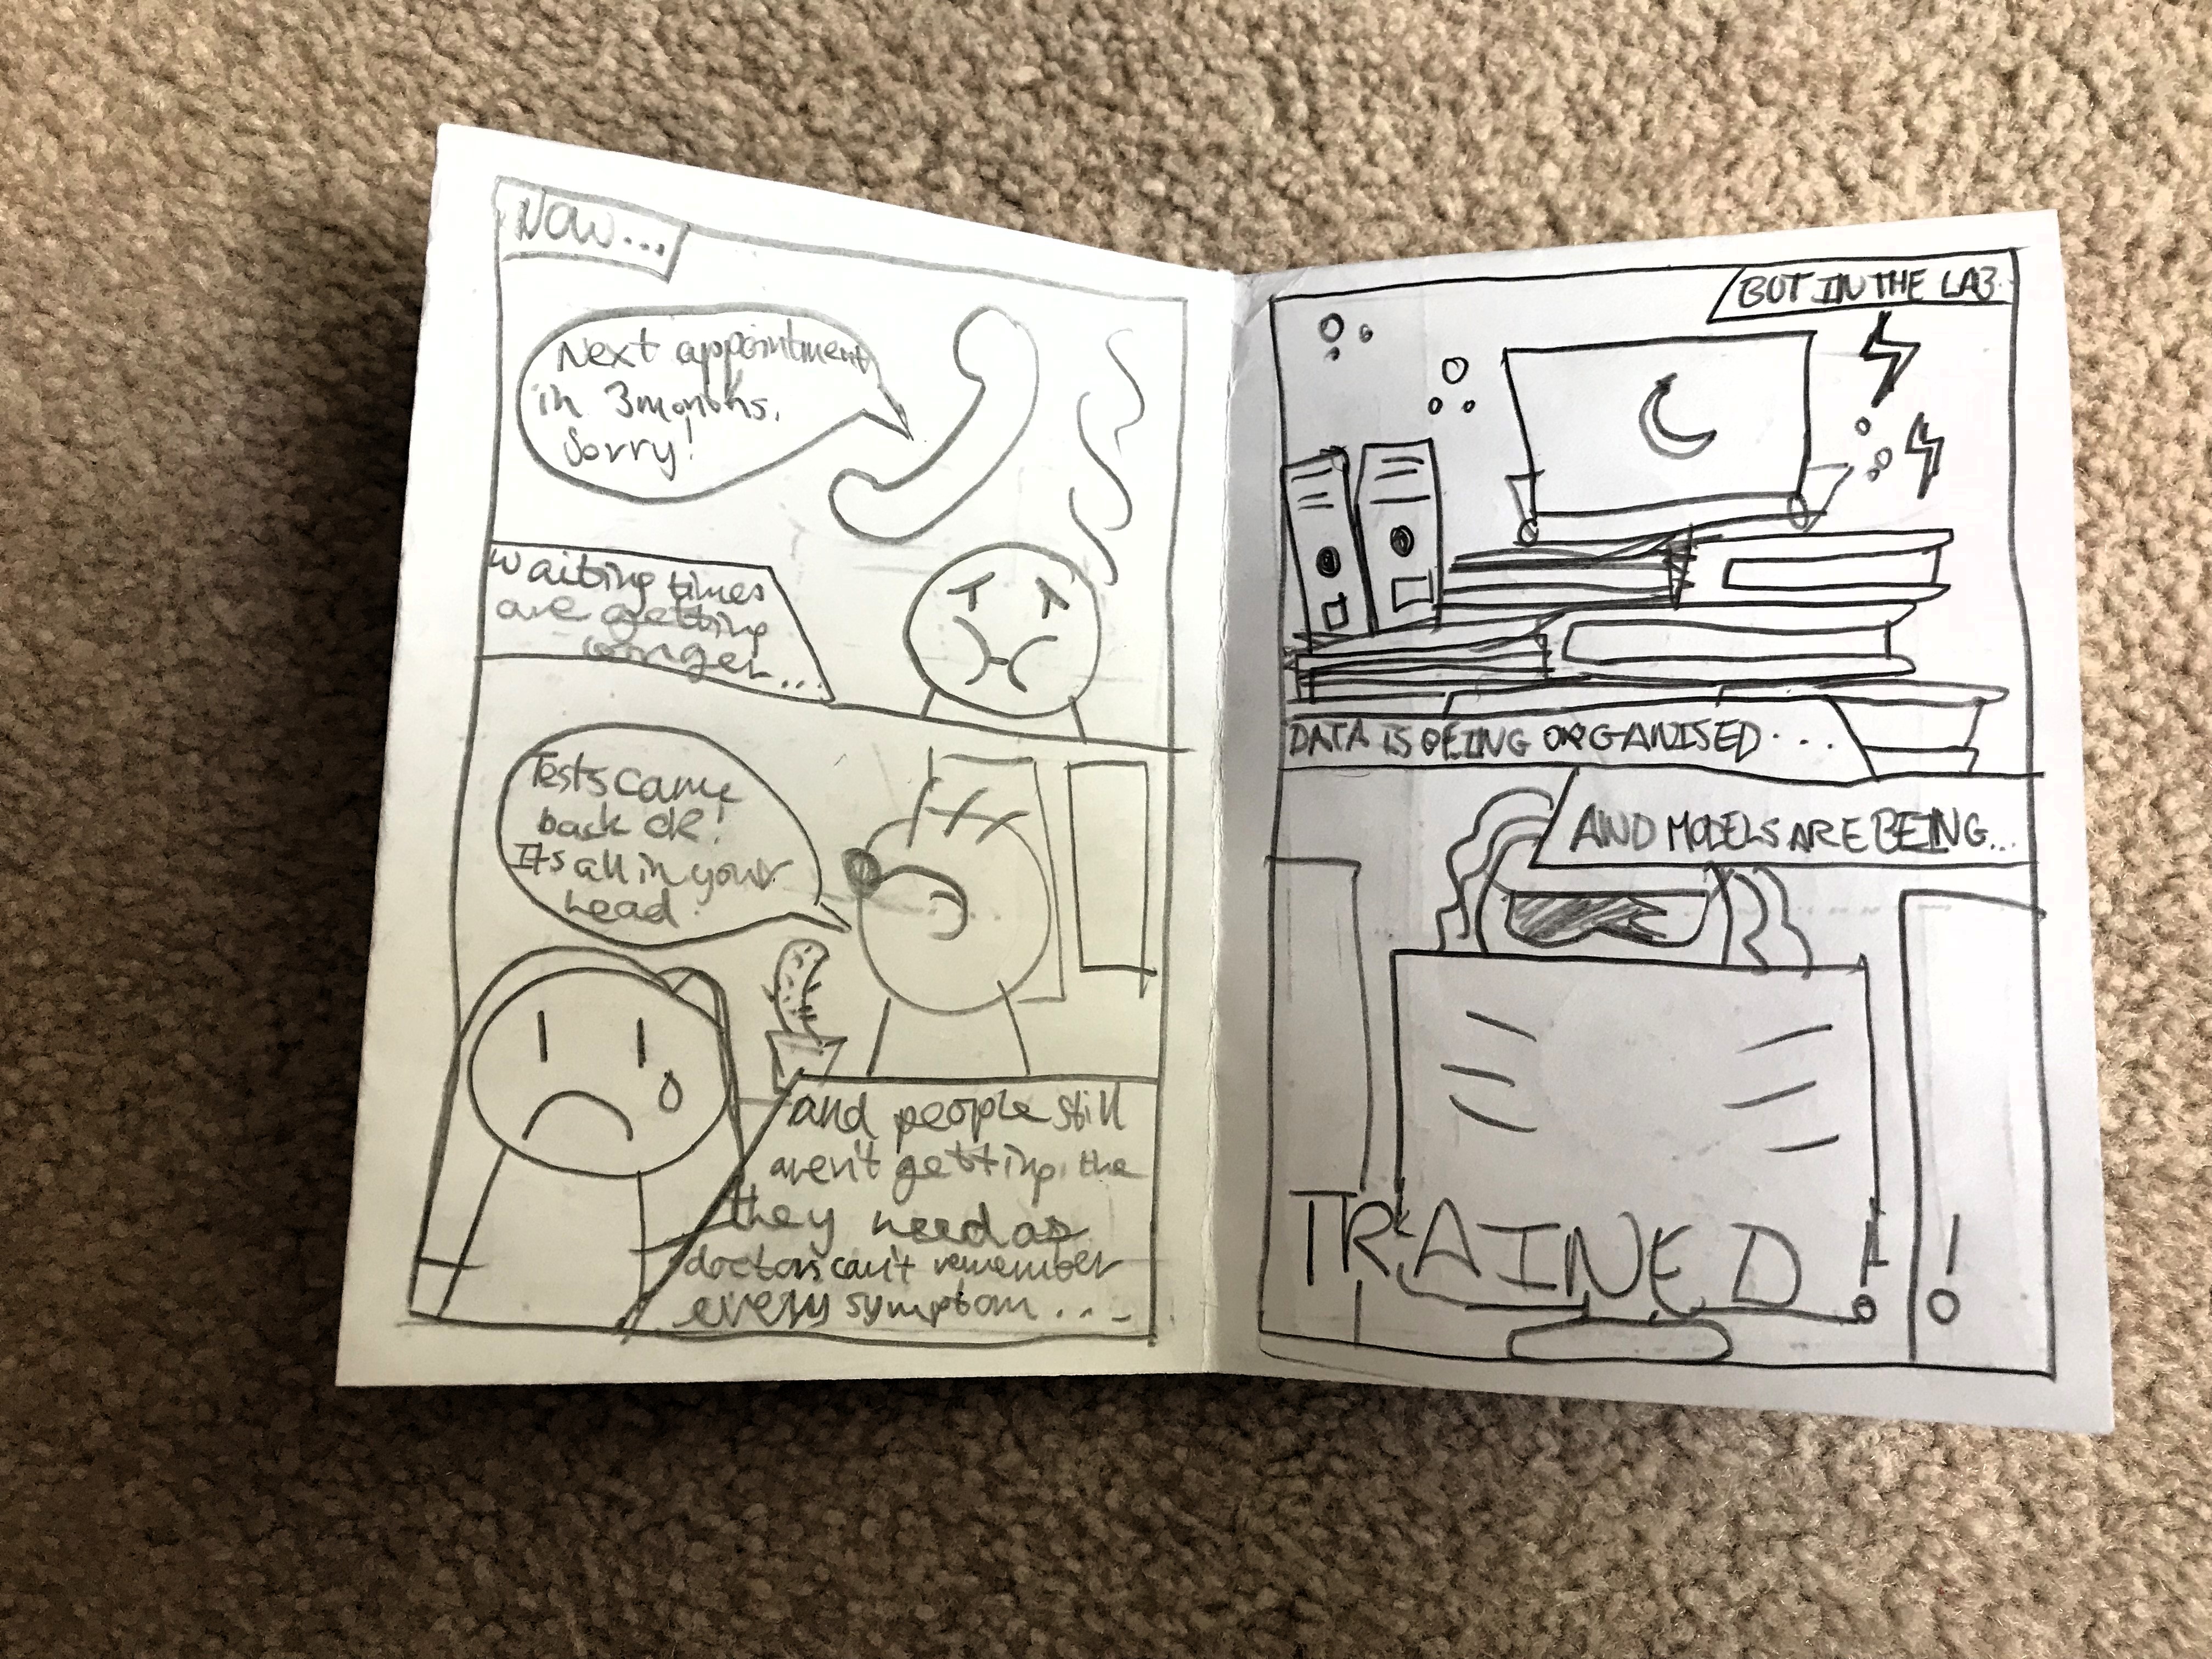 NOW...
Next appointment
in 3 months.
Sorry!
Waiting times
are getting
longer...
Tests came
back ok!
Its all in your
head.
and people still
aren't getting the
they need as
doctors can't remember
every symptom...
BUT IN THE LAB
DATA IS BEING ORGANISED...
AND MODELS ARE BEING...
TRAINED!!